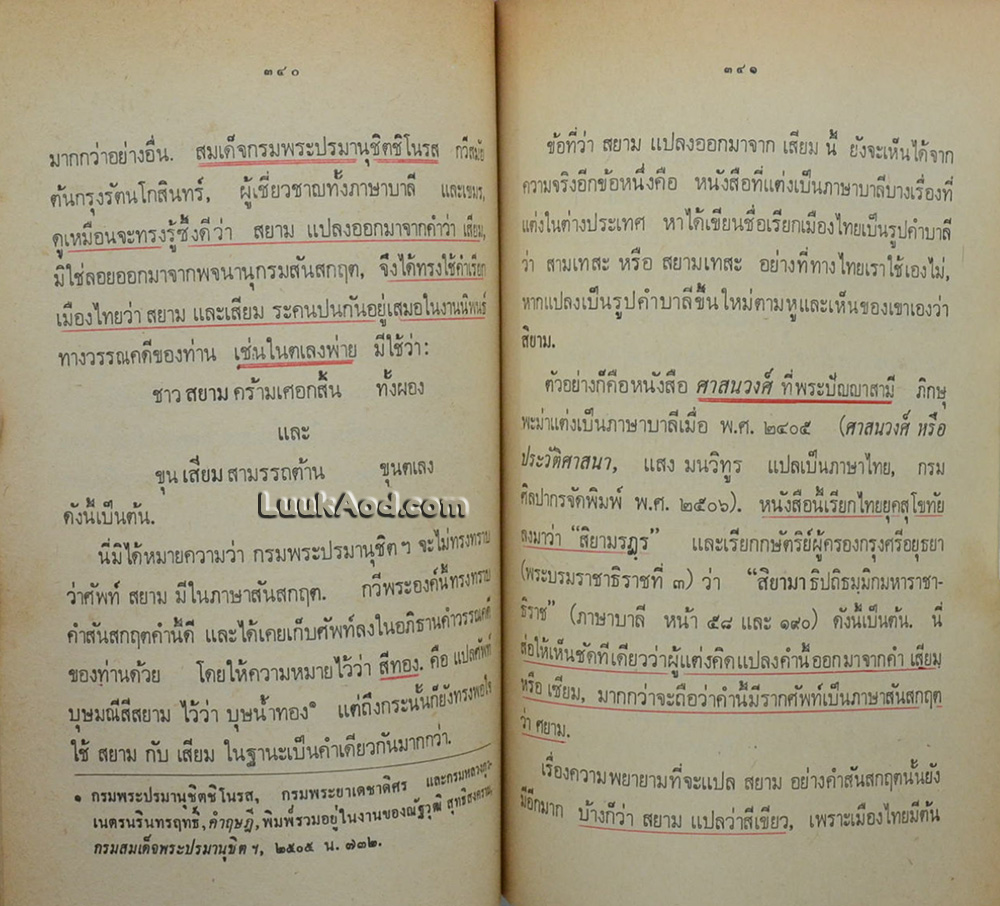 ๓๔๐
มากกว่าอย่างอื่น. สมเด็จกรมพระปรมานุชิตชิโนรส กวีสมัย
ต้นกรุงรัตนโกสินทร์, ผู้เชี่ยวชาญทั้งภาษาบาลี และเขมร,
ดูเหมือนจะทรงรู้ซึ้งดีว่า สยาม แปลงออกมาจากคำว่า เสียม,
มิใช่ลอยออกมาจากพจนานุกรมสันสกฤต, จึงได้ทรงใช้คำเรียก
เมืองไทยว่า สยาม และเสียม ระคนปนกันอยู่เสมอในงานนิพนธ์
ทางวรรณคดีของท่าน เช่นในตเลงพ่าย มีใช้ว่า:
ชาว สยาม คร้ามเศอกสิ้น ทั้งผอง
และ
ขุน เสียม สามรรถต้าน ขุนตเลง
ดังนี้เป็นต้น.
นี่มิได้หมายความว่า กรมพระปรมานุชิต ฯ จะไม่ทรงทราบ
ว่าศัพท์ สยาม มีในภาษาสันสกฤต. กวีพระองค์นี้ทรงทราบ
คำสันสกฤตคำนี้ดี และได้เคยเก็บศัพท์ลงในอภิธานคำวรรณคดี
ของท่านด้วย โดยให้ความหมายไว้ว่า สีทอง. คือ แปลศัพท์
บุษมณีสีสยาม ไว้ว่า บุษน้ำทอง๑ แต่ถึงกระนั้นก็ยังทรงพอใจ
ใช้ สยาม กับ เสียม ในฐานะเป็นคำเดียวกันมากกว่า.
๑ กรมพระปรมานุชิตชิโนรส, กรมพระยาเดชาดิศร และกรมหลวงภูว-
เนตรนรินทรฤทธิ์, คำฤษฎี, พิมพ์รวมอยู่ในงานของณัฐวุฒิ สุทธิสงคราม,
กรมสมเด็จพระปรมานุชิต ฯ, ๒๕๐๕ น. ๗๓๒.
๓๔๑
ข้อที่ว่า สยาม แปลงออกมาจาก เสียม นี้ ยังจะเห็นได้จาก
ความจริงอีกข้อหนึ่งคือ หนังสือที่แต่งเป็นภาษาบาลีบางเรื่องที่
แต่งในต่างประเทศ หาได้เขียนชื่อเรียกเมืองไทยเป็นรูปคำบาลี
ว่า สามเทสะ หรือ สยามเทสะ อย่างที่ทางไทยเราใช้เองไม่,
หากแปลงเป็นรูปคำบาลีขึ้นใหม่ตามหูและเห็นของเขาเองว่า
สิยาม.
ตัวอย่างก็คือหนังสือ ศาสนวงศ์ ที่พระปัญญาสามี ภิกษุ
พะม่าแต่งเป็นภาษาบาลีเมื่อ พ.ศ. ๒๔๐๕ (ศาสนวงศ์ หรือ
ประวัติศาสนา, แสง มนวิทูร แปลเป็นภาษาไทย, กรม
ศิลปากรจัดพิมพ์ พ.ศ. ๒๕๐๖). หนังสือนี้เรียกไทยยุคสุโขทัย
ลงมาว่า “สิยามรฏฺร” และเรียกกษัตริย์ผู้ครองกรุงศรีอยุธยา
(พระบรมราชาธิราชที่ ๓) ว่า “สิยามาธิปถิธมฺมิกมหาราชา-
ธิราช” (ภาษาบาลี หน้า ๕๘ และ ๑๙๐) ดังนี้เป็นต้น. นี่
ส่อให้เห็นชัดทีเดียวว่าผู้แต่งคิดแปลงคำนี้ออกมาจากคำ เสียม
หรือ เซียม, มากกว่าจะถือว่าคำนี้มีรากศัพท์เป็นภาษาสันสกฤต
ว่า ศยาม.
เรื่องความพยายามที่จะแปล สยาม อย่างคำสันสกฤตนั้นยัง
มีอีกมาก บ้างก็ว่า สยาม แปลว่าสีเขียว, เพราะเมืองไทยมีต้น
LuukAod.com